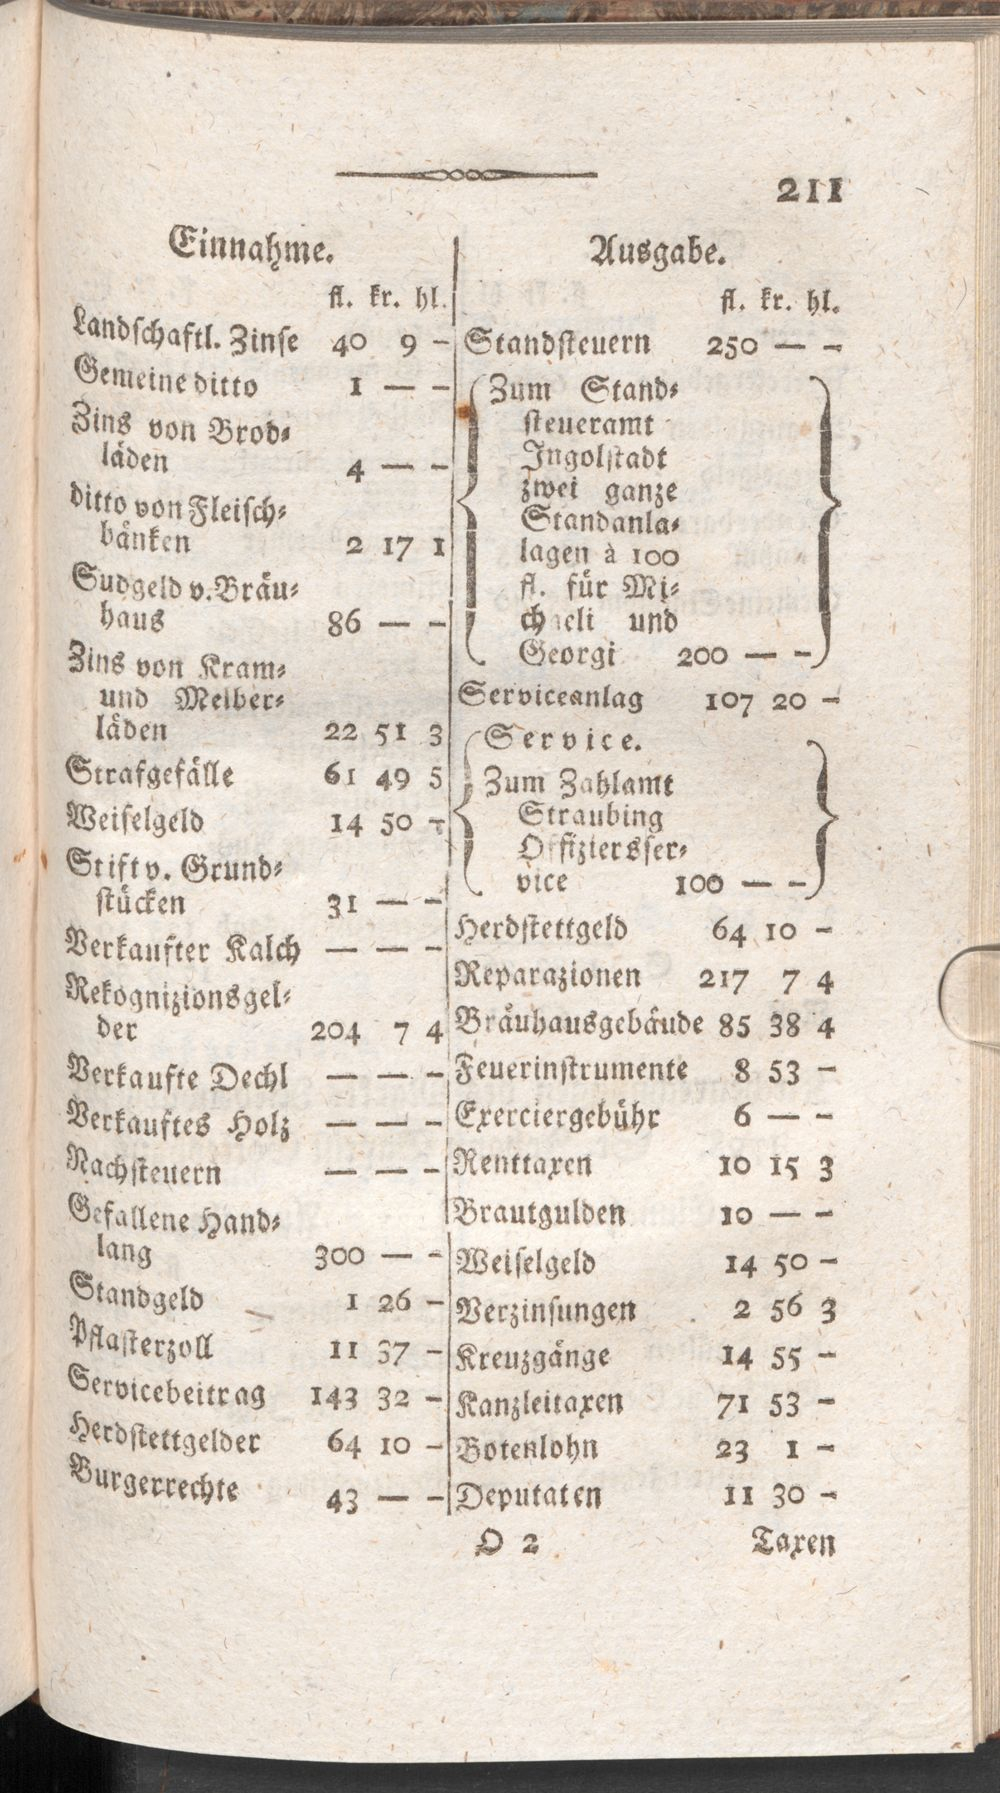 211
Einnahme.
fl. kr. hl.
Landschaftl. Zinse 40 9 –
Gemeine ditto 1 — –
Zins von Brod⸗
läden 4 — –
ditto von Fleisch⸗
bänken 2 17 1
Sudgeld v. Bräu⸗
haus 86 — –
Zins von Kram⸗
und Melber⸗
läden 22 51 3
Strafgefälle 61 49 5
Weiselgeld 14 50 –
Stift v. Grund⸗
stücken 31 — –
Verkaufter Kalch — — –
Rekognizionsgel⸗
der 204 7 4
Verkaufte Dechl — — –
Verkauftes Holz — — –
Nachsteuern — — –
Gefallene Hand⸗
lang 300 — –
Standgeld 1 26 –
Pflasterzoll 11 37 –
Servicebeitrag 143 32 –
Herdstettgelder 64 10 –
Burgerrechte 43 — –
Ausgabe.
fl. kr. hl.
Standsteuern 250 — –
Zum Stand⸗
steueramt
Ingolstadt
zwei ganze
Standanla⸗
lagen à 100
fl. für Mi⸗
chaeli und
Georgi 200 — –
Serviceanlag 107 20 –
Service.
Zum Zahlamt
Straubing
Offiziersser⸗
vice 100 — –
Herdstettgeld 64 10 –
Reparazionen 217 7 4
Bräuhausgebäude 85 38 4
Feuerinstrumente 8 53 –
Exerciergebühr 6 — –
Renttaxen 10 15 3
Brautgulden 10 — –
Weiselgeld 14 50 –
Verzinsungen 2 56 3
Kreuzgänge 14 55 –
Kanzleitaxen 71 53 –
Botenlohn 23 1 –
Deputaten 11 30 –
O 2 Taxen